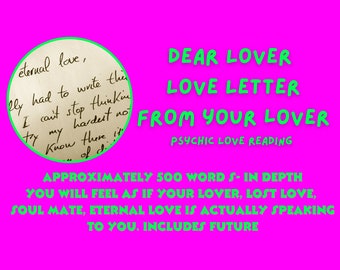 eternal love,
lly had to write this
I can't stop thinkin
try my hardest no
Know there i
"of di
DEAR LOVER
LOVE LETTER
FROM YOUR LOVER
PSYCHIC LOVE READING
APPROXIMATELY 500 WORD S- IN DEPTH
YOU WILL FEEL AS IF YOUR LOVER, LOST LOVE,
SOUL MATE, ETERNAL LOVE IS ACTUALLY SPEAKING
TO YOU. INCLUDES FUTURE